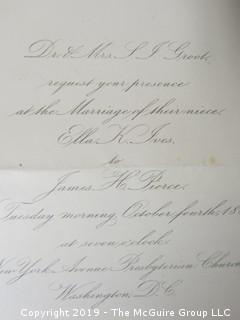 Dr. & Mrs. S. I. Groot,
request your presence
at the Marriage of their niece,
Ella K. Ives,
to
James H. Pierce,
Tuesday morning, October fourth, 18
at seven o'clock,
New York Avenue Presbyterian Church
Washington, D.C.
Copyright 2019 - The McGuire Group